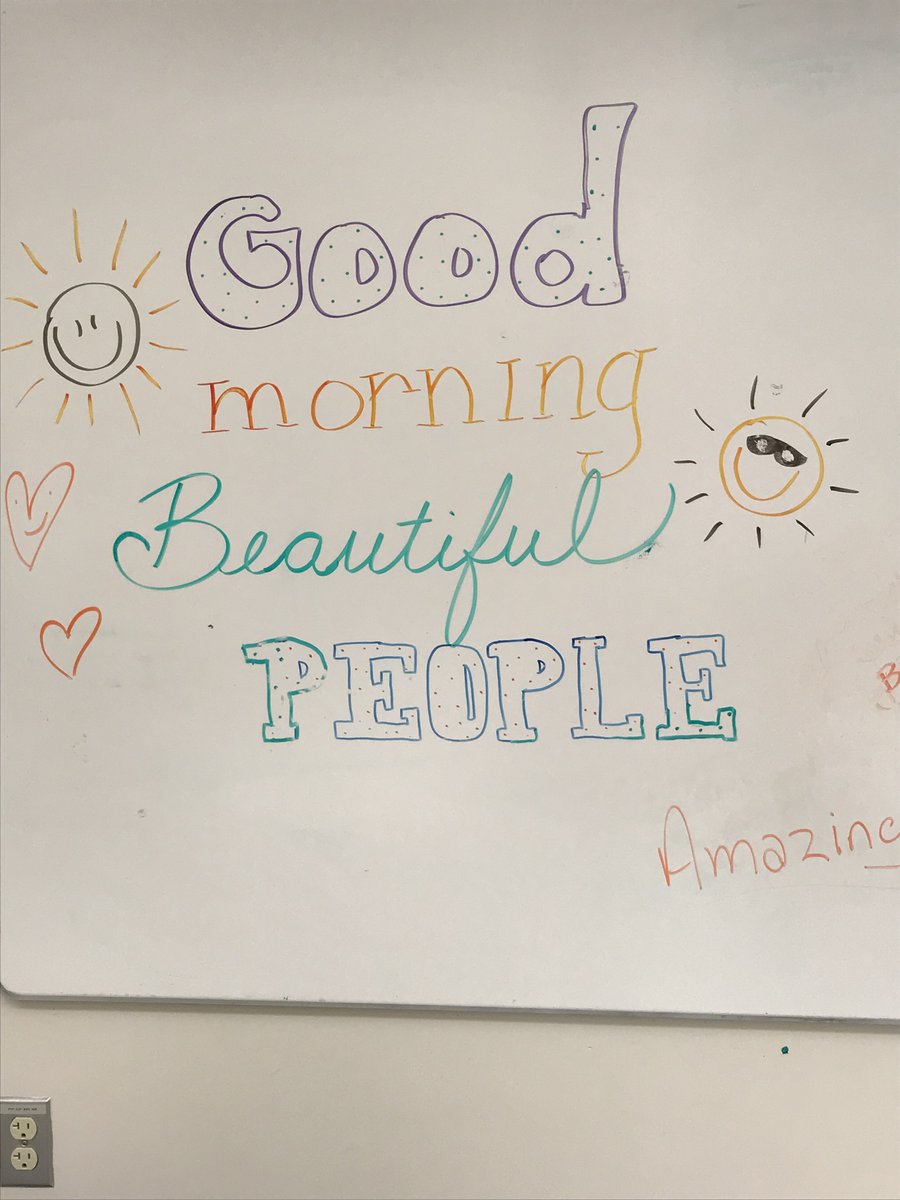 Good
morning
Beautiful
PEOPLE
Amazing